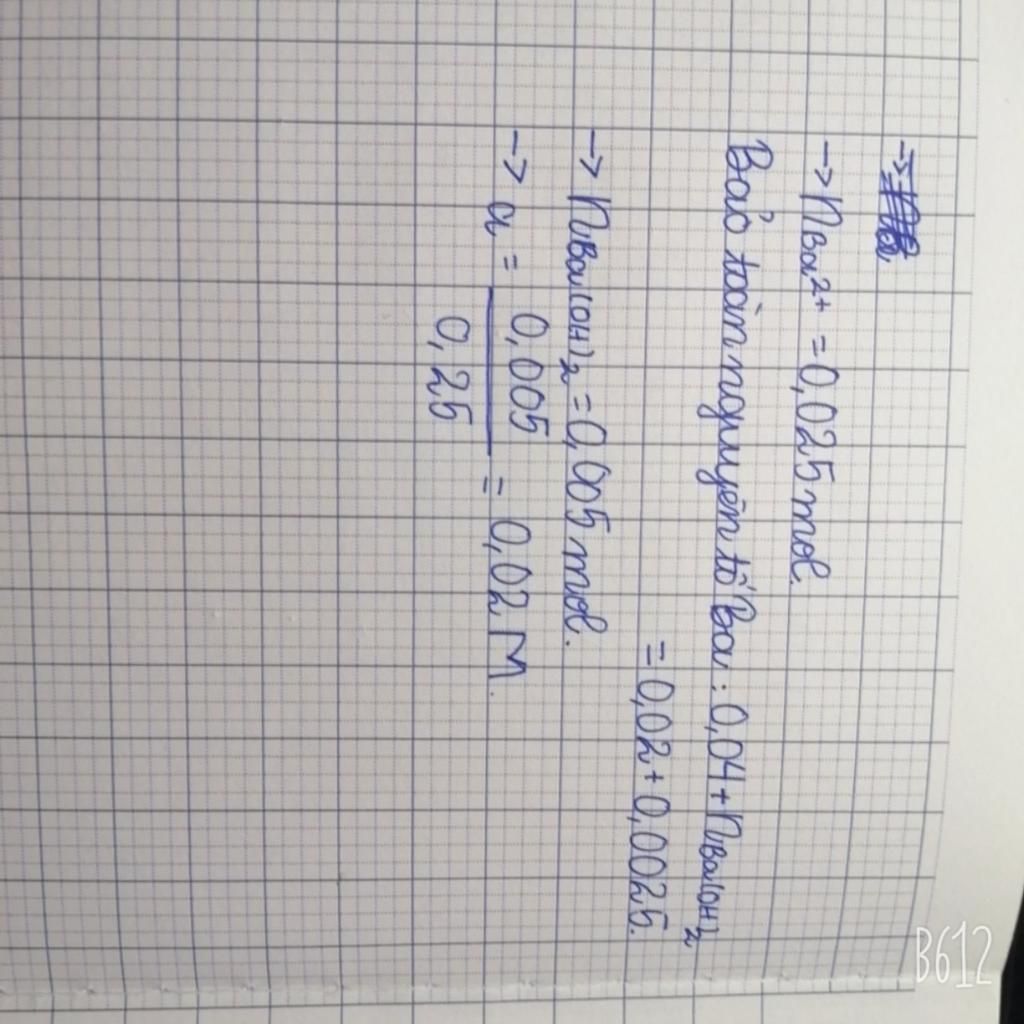 →
→ nBa2+ = 0,025 mol.
Bảo toàn nguyên tố Ba : 0,04 + nBa(OH)2
= 0,02 + 0,0025.
→ nBa(OH)2 = 0,005 mol.
→ a = 0,005 / 0,25 = 0,02 M.
B612